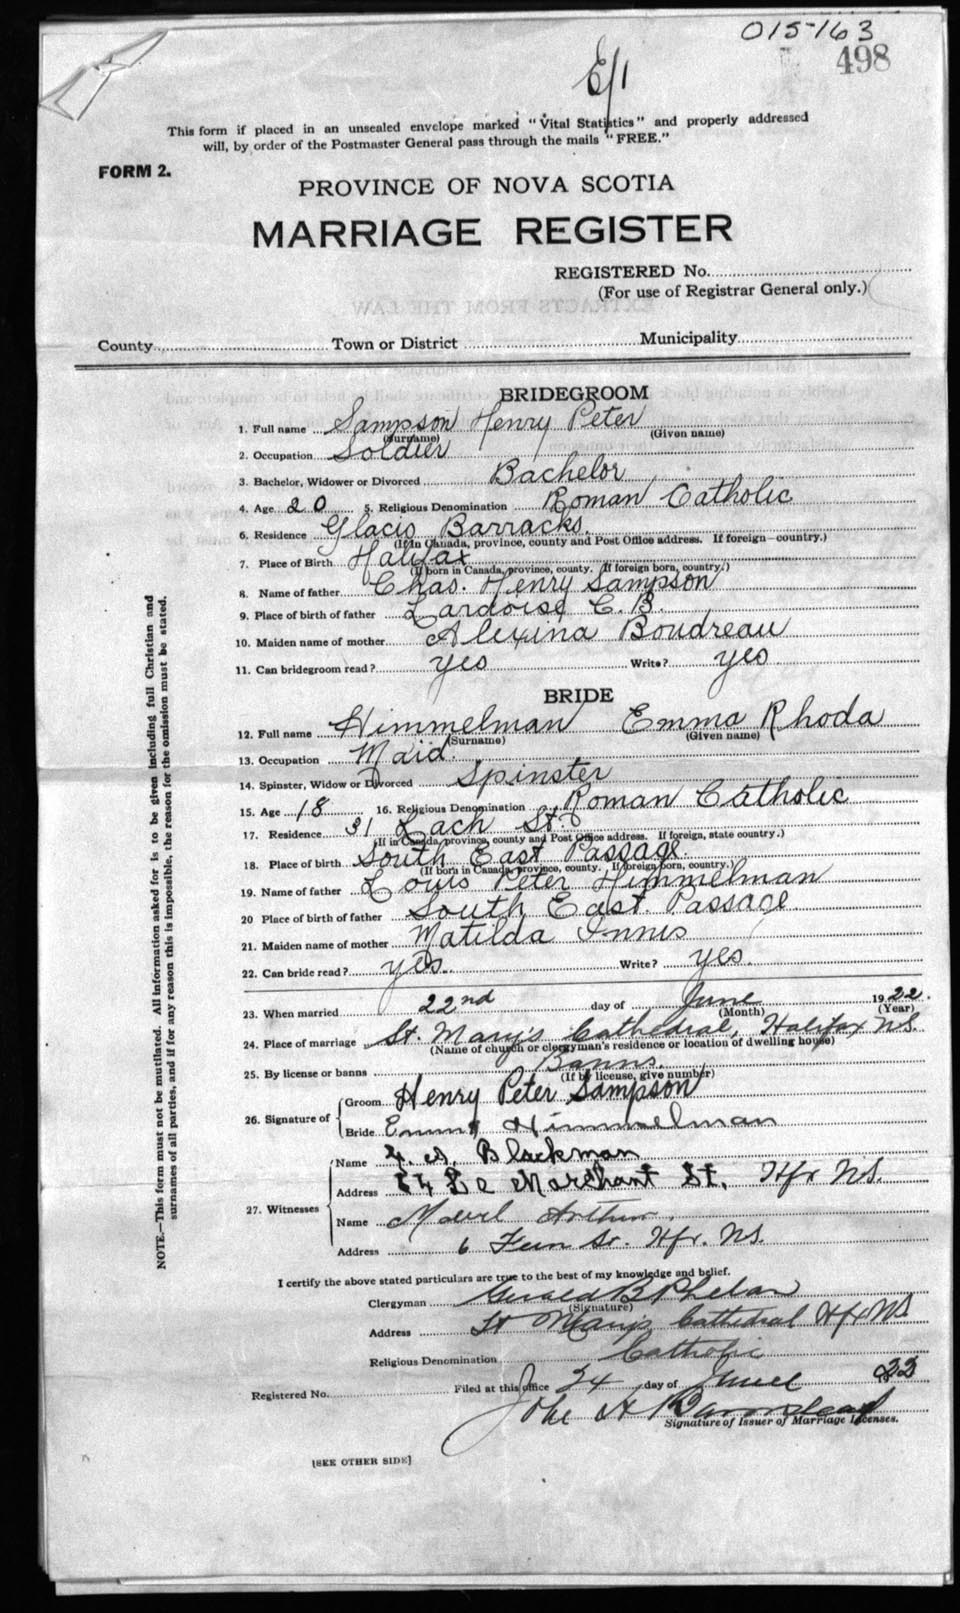 015-163
498
E/1
This form if placed in an unsealed envelope marked "Vital Statistics" and properly addressed
will, by order of the Postmaster General pass through the mails "FREE."
FORM 2.
PROVINCE OF NOVA SCOTIA
MARRIAGE REGISTER
REGISTERED No.
(For use of Registrar General only.)
EXTRACTS FROM THE LAW
County Town or District Municipality
BRIDEGROOM
1. Full name Sampson Henry Peter
(Surname) (Given name)
2. Occupation Soldier
3. Bachelor, Widower or Divorced Bachelor
4. Age 20 5. Religious Denomination Roman Catholic
6. Residence Glacis Barracks.
(If in Canada, province, county and Post Office address. If foreign country.)
7. Place of Birth Halifax
(If born in Canada, province, county. If foreign born, country.)
8. Name of father Chas. Henry Sampson
9. Place of birth of father Lardoise C.B.
10. Maiden name of mother Alexina Boudreau
11. Can bridegroom read? yes Write? yes
BRIDE
12. Full name Himmelman Emma Rhoda
(Surname) (Given name)
13. Occupation Maid.
14. Spinster, Widow or Divorced Spinster
15. Age 18 16. Religious Denomination Roman Catholic
17. Residence 31 Zach St.
(If in Canada, province, county and Post Office address. If foreign, state country.)
18. Place of birth South East Passage
(If born in Canada, province, county. If foreign born, country.)
19. Name of father Louis Peter Himmelman
20 Place of birth of father South East Passage
21. Maiden name of mother Matilda Innis
22. Can bride read? yes. Write? yes.
23. When married 22nd day of June 1922.
(Month) (Year)
24. Place of marriage St. Mary's Cathedral, Halifax N.S.
(Name of church or clergyman's residence or location of dwelling house)
25. By license or banns Banns.
(If by license, give number)
26. Signature of Groom Henry Peter Sampson
Bride Emma Himmelman
27. Witnesses
Name Blackman
Address 54 Le Marchant St. Hfx N.S.
Name Mabel Arthur.
Address 6 Fern St. Hfx. N.S.
I certify the above stated particulars are true to the best of my knowledge and belief.
Clergyman Gerald B Phelan
(Signature)
Address St Mary's Cathedral Hfx NS
Religious Denomination Catholic
Registered No. Filed at this office 24 day of June 22
John A Barnstead
Signature of Issuer of Marriage Licenses.
[SEE OTHER SIDE]
NOTE.—This form must not be mutilated. All information asked for is to be given including full Christian and
surnames of all parties, and if for any reason this is impossible, the reason for the omission must be stated.